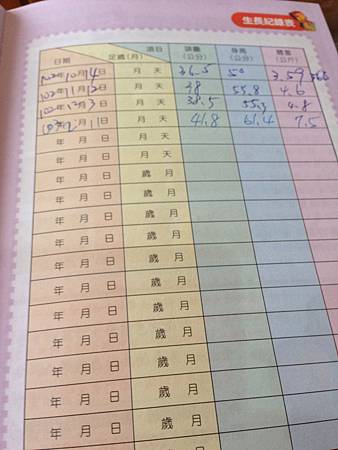 生長紀錄表
日期 足歲(月) 項目 頭圍(公分) 身高(公分) 體重(公斤)
102年10月14日 月 天 36.5 50 3.59
102年11月12日 月 天 38 55.8 4.6
102年12月3日 月 天 38.5 4.8
月11日 月 天 41.8 61.4 7.5
年 月 日 月 天
年 月 日 歲 月
年 月 日 歲 月
年 月 日 歲 月
年 月 日 歲 月
年 月 日 歲 月
年 月 日 歲 月
年 月 日 歲 月
年 月 日 歲 月
年 月 日 歲 月
年 月 日 歲 月
年 月 日 歲 月